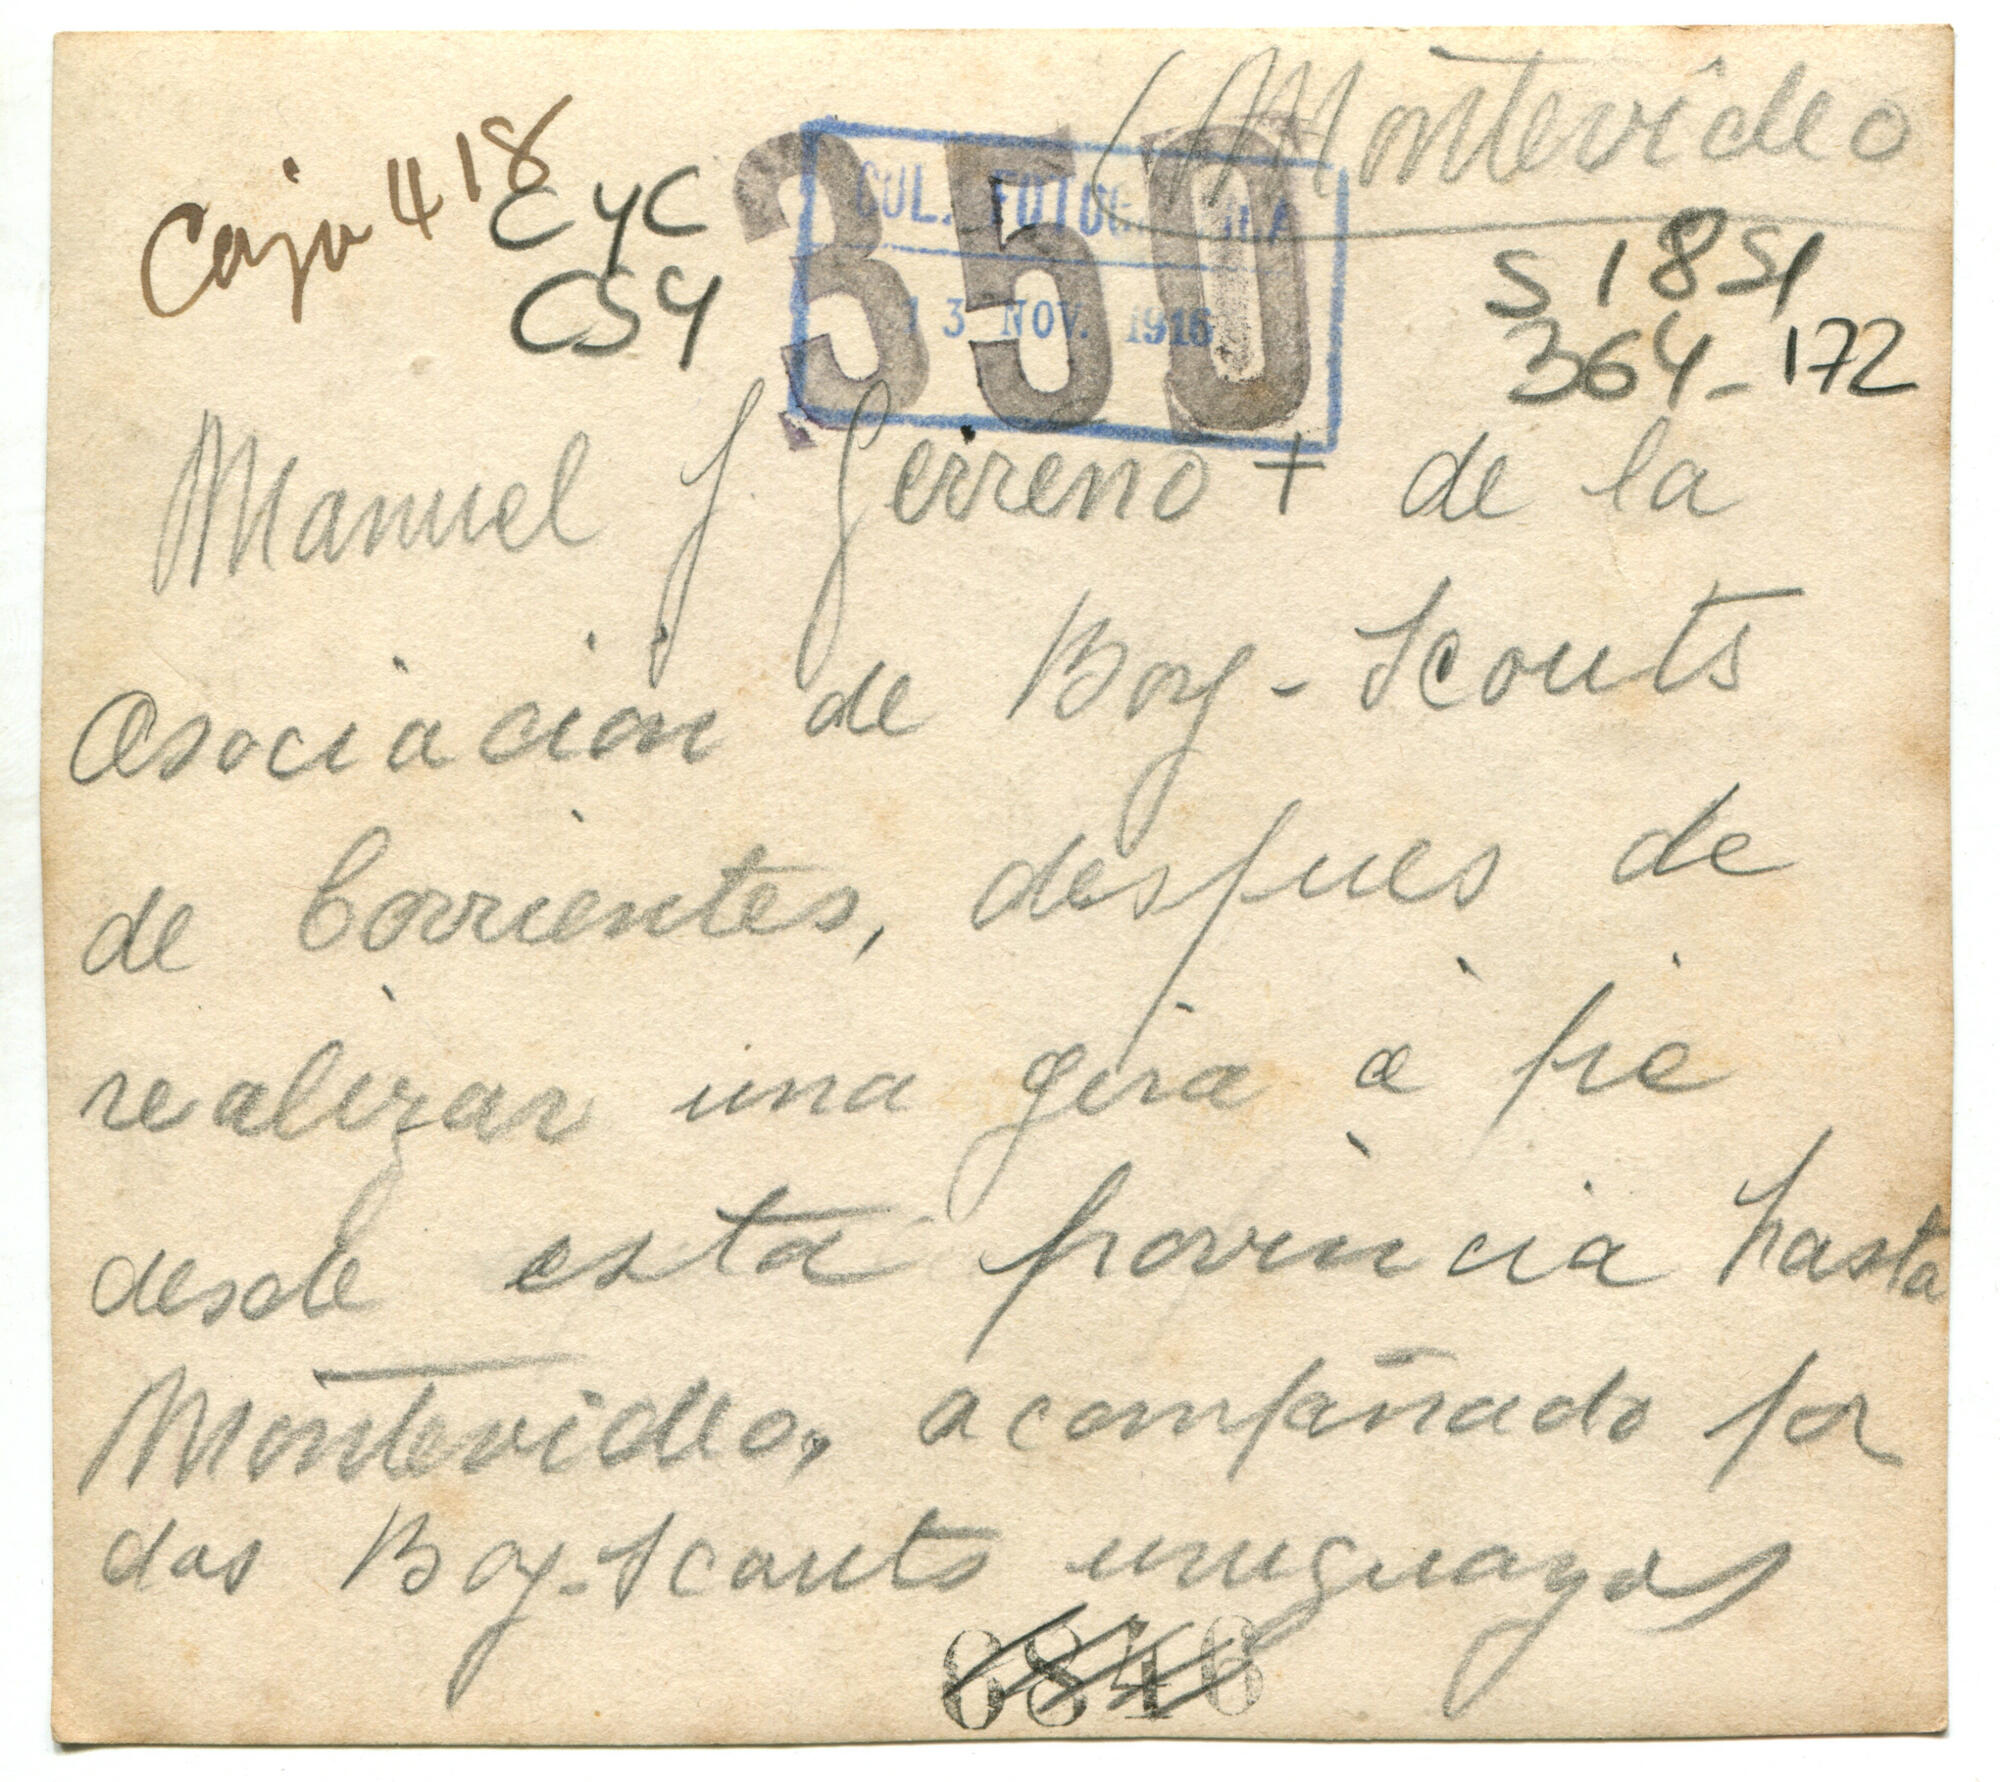 (Montevideo
Caja 418
CyC
CS4
350
COL. FOTOGRAFICA
13 NOV. 1916
S 1851
364-172
Manuel J. Gerreno + de la
asociación de Boy-Scouts
de Corrientes, despues de
realizar una gira á pie
desde esta provincia hasta
Montevideo, acompañado por
dos Boy-Scouts uruguayos
6846